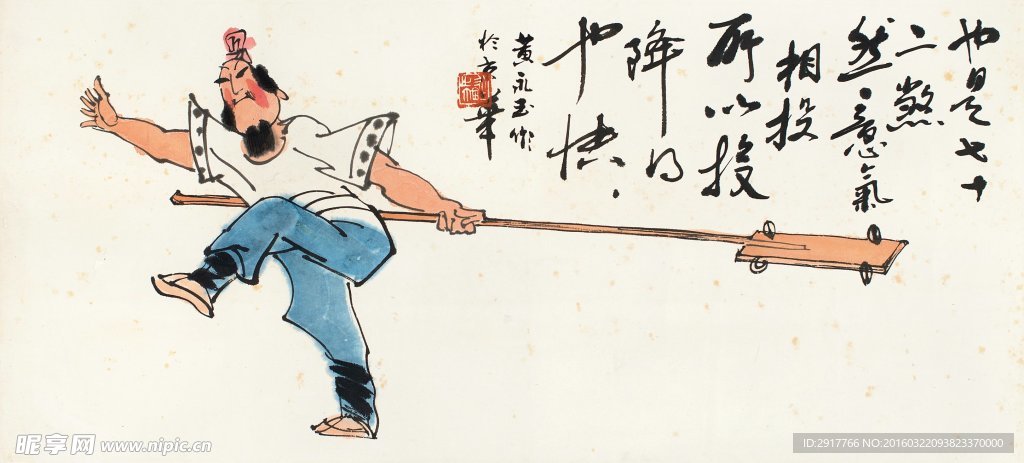 也是七十
二煞
然意氣
相投
所以投
降得
也快
黄永玉作
於京華
昵享网 www.nipic.cn
ID:2917766 NO:20160322093823370000